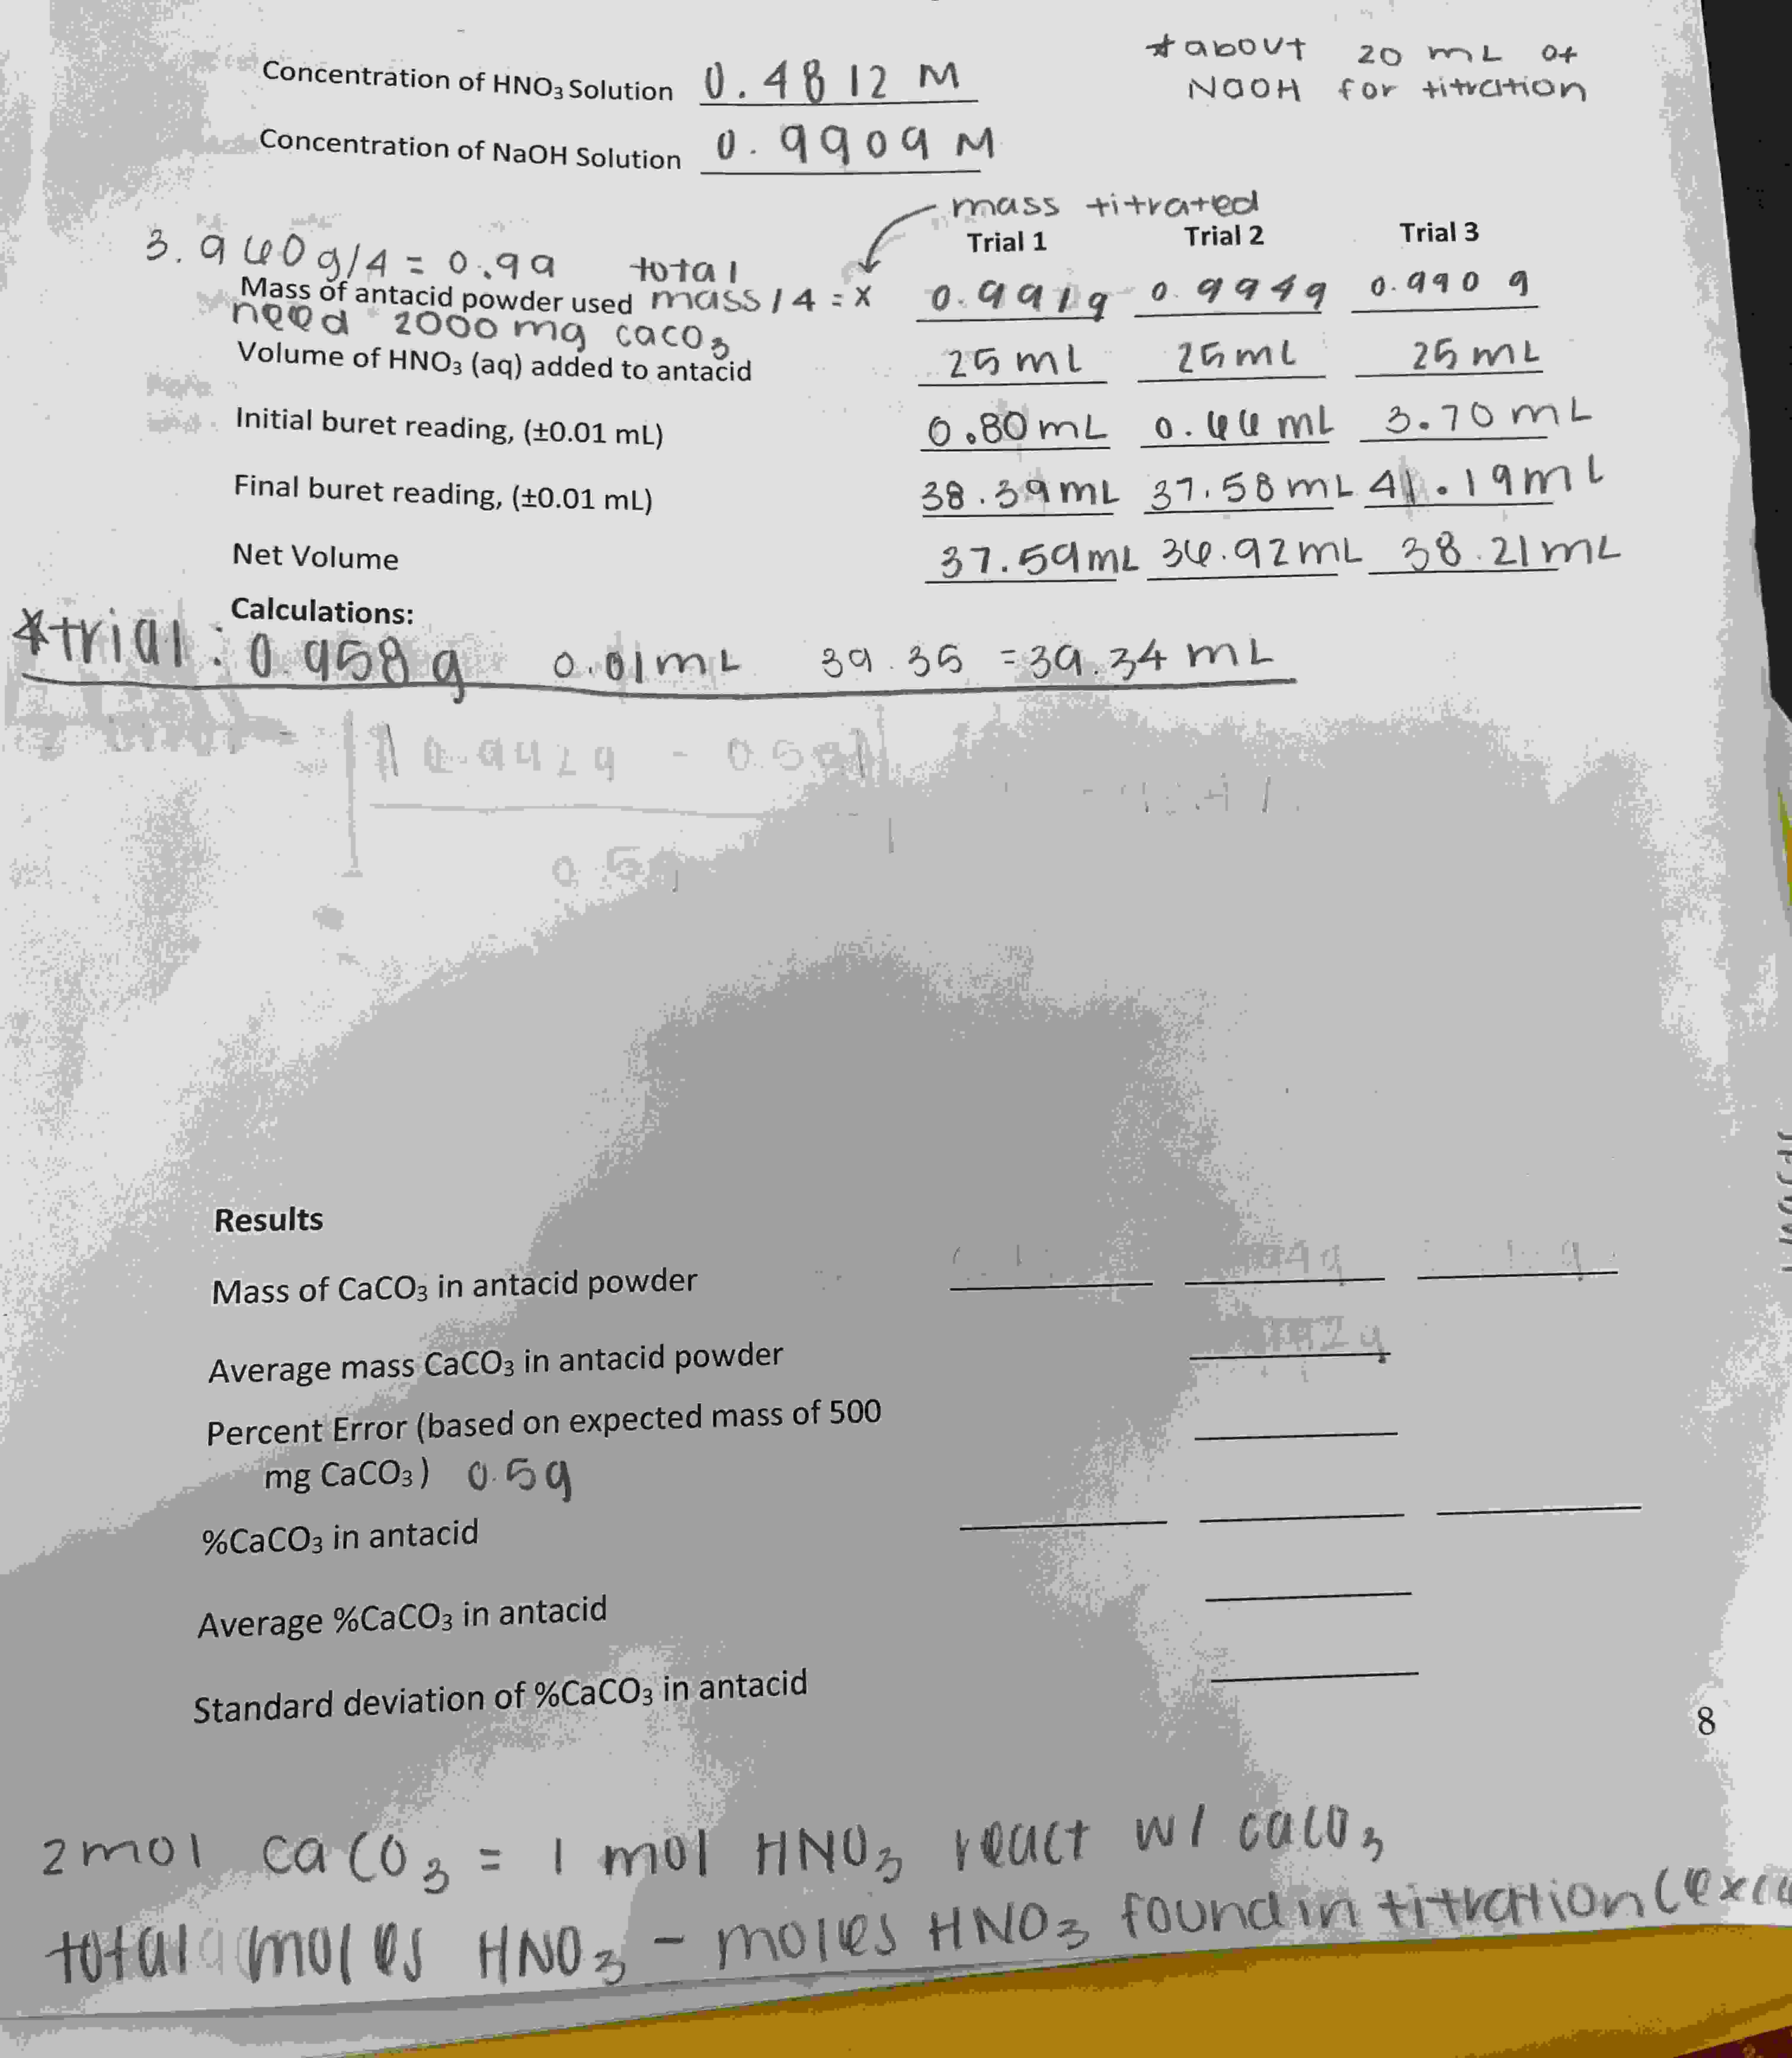 *about 20 mL of
NaOH for titration
Concentration of HNO₃ Solution 0.4812 M
Concentration of NaOH Solution 0.9909 M
mass titrated
Trial 1 Trial 2 Trial 3
3.960g/4 = 0.99 total
Mass of antacid powder used mass/4 = x 0.991g 0.994g 0.990 g
need 2000 mg caco₃
Volume of HNO₃ (aq) added to antacid 25 mL 25 mL 25 mL
Initial buret reading, (±0.01 mL) 0.80 mL 0.66 mL 3.70 mL
Final buret reading, (±0.01 mL) 38.39 mL 37.58 mL 41.19 mL
Net Volume 37.59 mL 36.92 mL 38.21 mL
Calculations:
*trial: 0.958g 0.01 mL 39.35 = 39.34 mL
Results
Mass of CaCO₃ in antacid powder
Average mass CaCO₃ in antacid powder
Percent Error (based on expected mass of 500
mg CaCO₃) 0.5g
%CaCO₃ in antacid
Average %CaCO₃ in antacid
Standard deviation of %CaCO₃ in antacid
8
2 mol CaCO₃ = 1 mol HNO₃ react w/ caco₃
total moles HNO₃ - moles HNO₃ found in titration